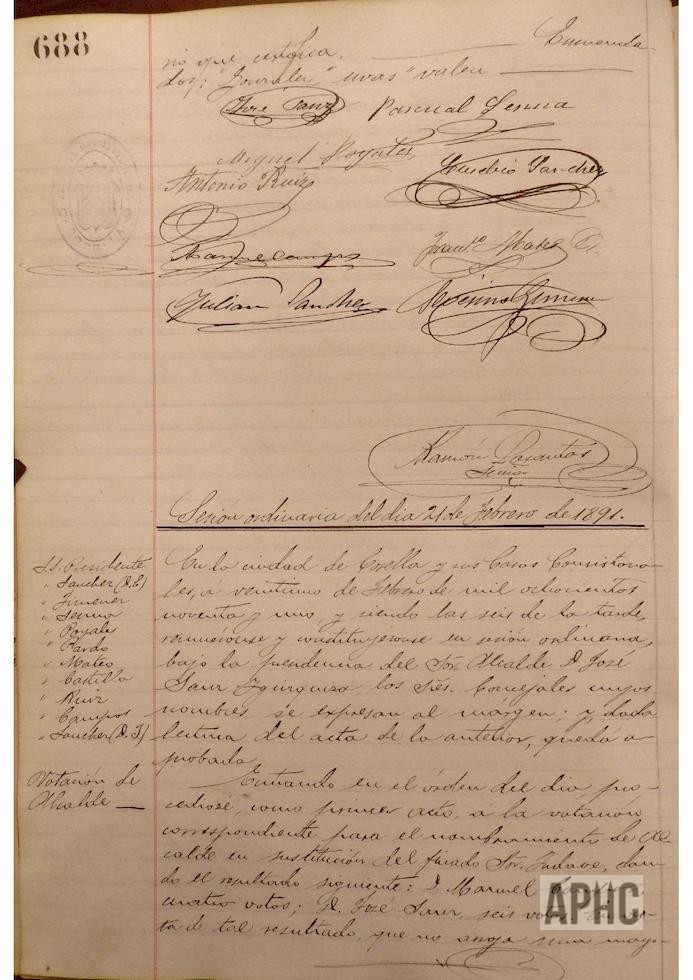 688
rio que certifica. Enmenda-
dos: "Gonzalez" "uvas" valen
José Sanz Pascual Serma
Miguel Poyales
Antonio Ruiz Eusebio Sanchez
Roque Campos Franco. Mateo
Julian Sanchez Severino Gimenez
Ramón
Srio.
Sesion ordinaria del dia 21 de Febrero de 1891.
S.S. Presidente
" Sanchez (D.E)
" Jimenez
" Serma
" Poyales
" Pardo
" Mateo
" Castilla
" Ruiz
" Campos
" Sanchez (D. J)
En la ciudad de Corella y sus Casas Consistoria-
les, á veintiuno de Febrero de mil ochocientos
noventa y uno, y siendo las seis de la tarde,
reunieronse y constituyeronse en sesión ordinaria,
bajo la presidencia del Sor. Alcalde D. José
Sanz, los Sres. Concejales cuyos
nombres se expresan al margen; y, dada
lectura del acta de la anterior, quedó a-
probada.
Votación de
Alcalde
Entrando en el órden del dia, pro-
cedióse, como primer acto, á la votación
correspondiente para el nombramiento de Al-
calde en sustitución del finado Sor. Yudave, dan-
do el resultado siguiente: D. Manuel
cuatro votos; D. José Sanz, seis votos. En vis-
ta de tal resultado, que no arroja una mayo-
APHC